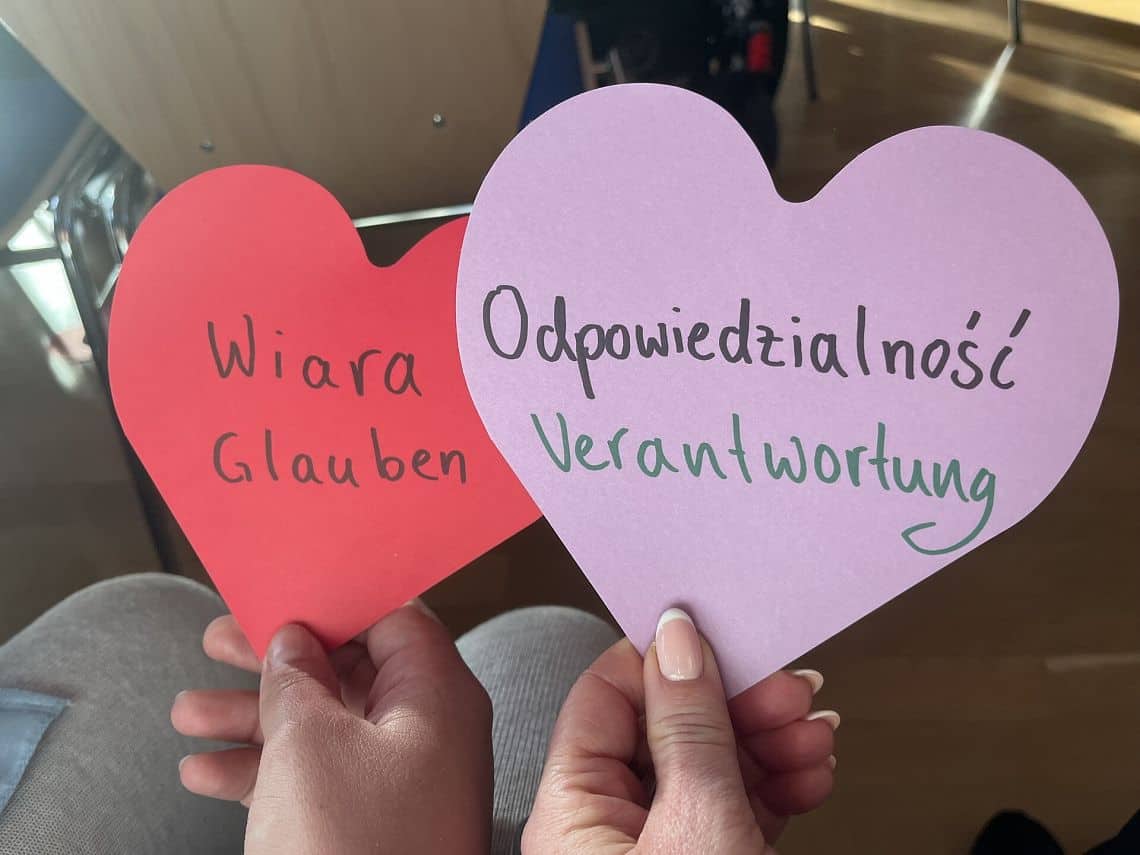 Wiara
Glauben
Odpowiedzialność
Verantwortung